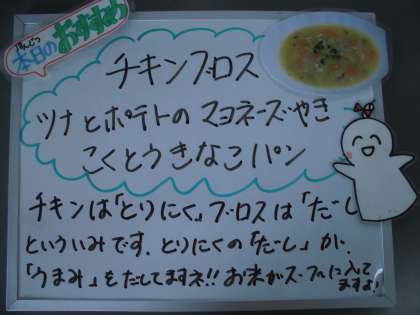 ほんじつ
本日のおすすめ
チキンブロス
ツナとポテトのマヨネーズやき
こくとうきなこパン
チキンは「とりにく」ブロスは「だし」
といういみです。とりにくの「だし」が、
「うまみ」をだしてますネ!!お米がスープに入て
ますよ!